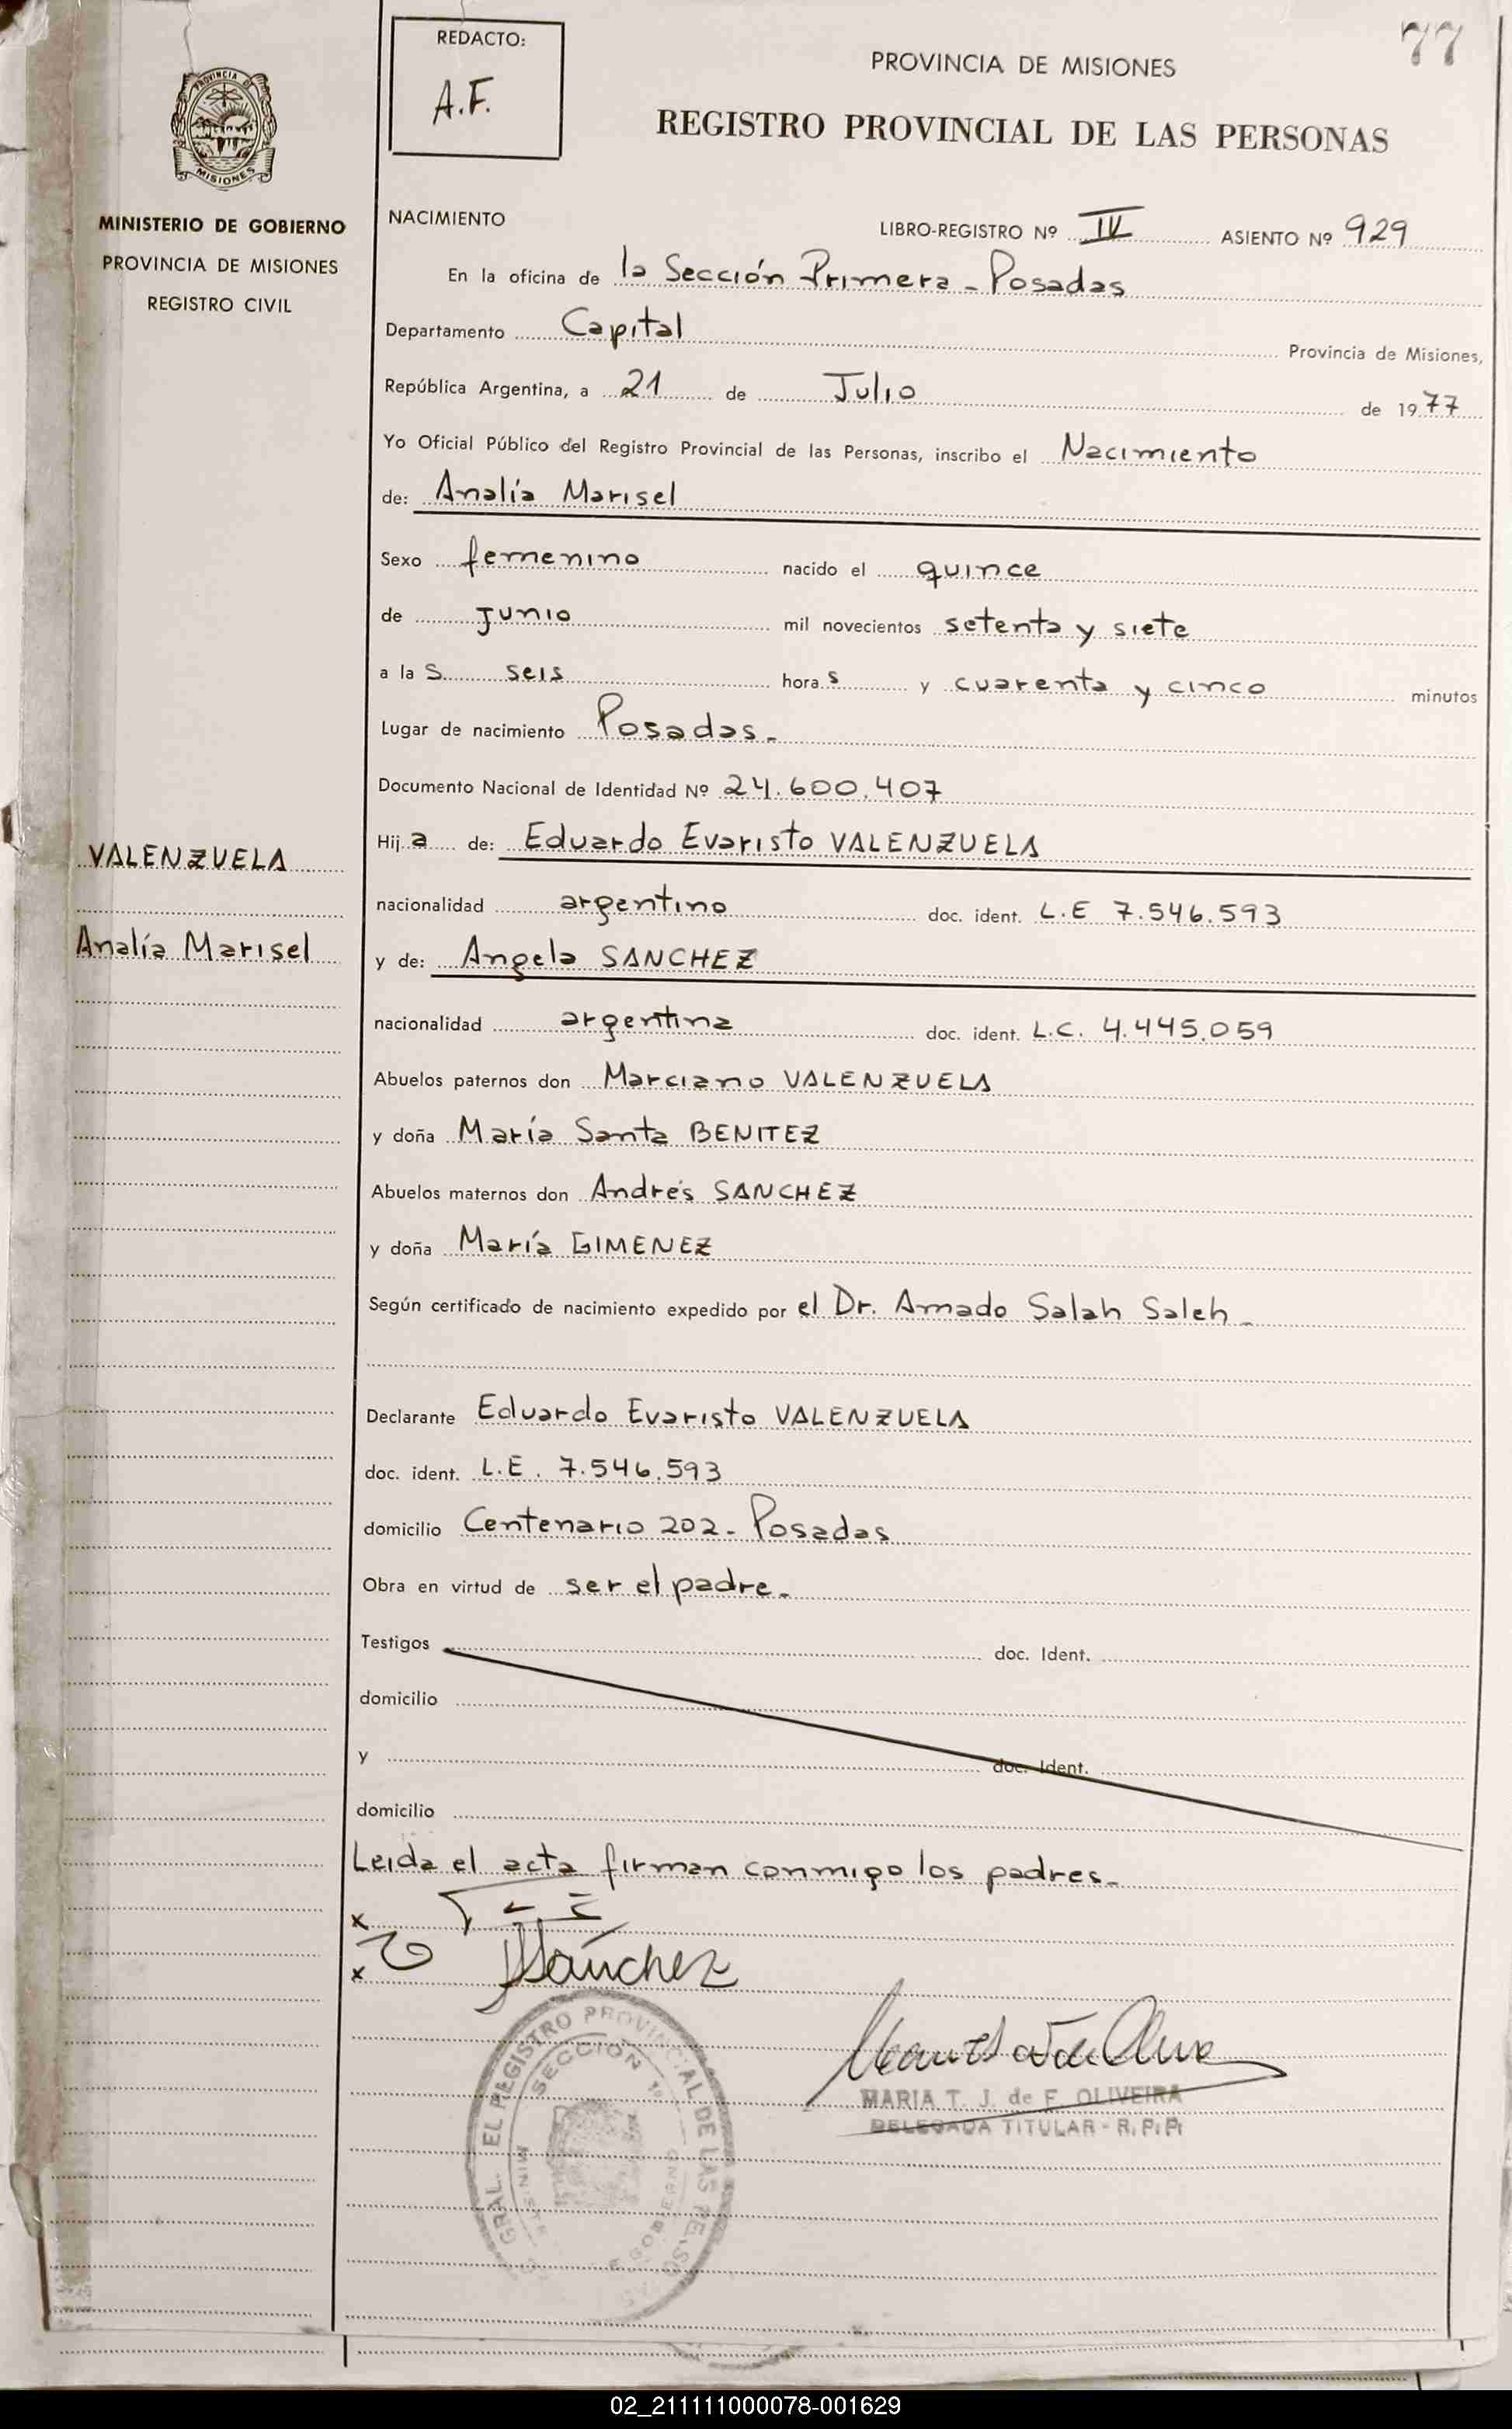 77
REDACTO:
A.F.
PROVINCIA DE MISIONES
REGISTRO PROVINCIAL DE LAS PERSONAS
PROVINCIA DE
MISIONES
MINISTERIO DE GOBIERNO
PROVINCIA DE MISIONES
REGISTRO CIVIL
NACIMIENTO LIBRO-REGISTRO Nº IV ASIENTO Nº 929
En la oficina de la Sección Primera - Posadas
Departamento Capital Provincia de Misiones,
República Argentina, a 21 de Julio de 1977
Yo Oficial Público del Registro Provincial de las Personas, inscribo el Nacimiento
de: Analía Marisel
Sexo femenino nacido el quince
de Junio mil novecientos setenta y siete
a la s seis hora s y cuarenta y cinco minutos
Lugar de nacimiento Posadas.-
Documento Nacional de Identidad Nº 24.600.407
VALENZUELA
Analía Marisel
Hij a de: Eduardo Evaristo VALENZUELA
nacionalidad argentino doc. ident. L.E 7.546.593
y de: Angela SANCHEZ
nacionalidad argentina doc. ident. L.C. 4.445.059
Abuelos paternos don Marciano VALENZUELA
y doña María Santa BENITEZ
Abuelos maternos don Andrés SANCHEZ
y doña María GIMENEZ
Según certificado de nacimiento expedido por el Dr. Amado Salah Saleh -
Declarante Eduardo Evaristo VALENZUELA
doc. ident. L.E. 7.546.593
domicilio Centenario 202- Posadas
Obra en virtud de ser el padre.-
Testigos doc. Ident.
domicilio
y doc. Ident.
domicilio
Leida el acta firman conmigo los padres.-
x
x
Sánchez
GRAL. EL REGISTRO PROVINCIAL DE LAS
SECCION 1º
GOBIERNO
MARIA T. J. de F. OLIVEIRA
DELEGADA TITULAR - R. P. P.
02_211111000078-001629